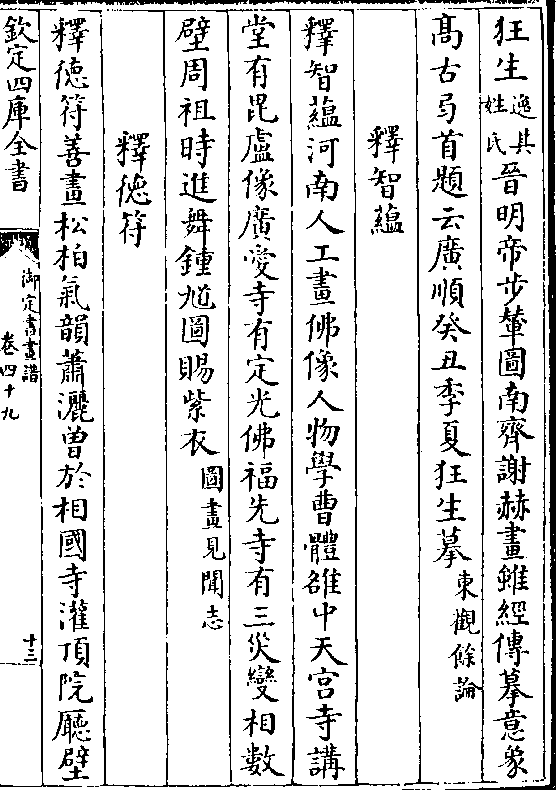 狂生逸其姓氏晉明帝步輦圖南齊謝赫畫雖經傳摹意象
髙古弓首題云廣順癸丑季夏狂生摹東觀餘論
釋智藴
釋智藴河南人工畫佛像人物學曹體雒中天宫寺講
堂有毘盧像廣愛寺有定光佛福先寺有三災變相數
壁周祖時進舞鍾馗圖賜紫衣圖畫見聞志
釋德符
釋德符善畫松柏氣韻蕭灑曾於相國寺灌頂院廳壁
欽定四庫全書
御定書畫譜
卷四十九
十三